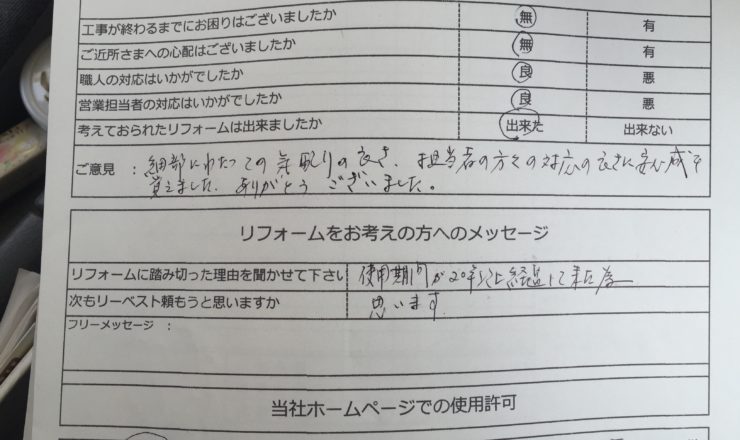 工事が終わるまでにお困りはございましたか 無 有
ご近所さまへの心配はございましたか 無 有
職人の対応はいかがでしたか 良 悪
営業担当者の対応はいかがでしたか 良 悪
考えておられたリフォームは出来ましたか 出来た 出来ない
ご意見 : 細部にわたっての気配りの良さ、担当者の方々の対応の良さに安心感を
覚えました。ありがとうございました。
リフォームをお考えの方へのメッセージ
リフォームに踏み切った理由を聞かせて下さい 使用期間が20年以上経過して来た為
次もリーベスト頼もうと思いますか 思います
フリーメッセージ :
当社ホームページでの使用許可